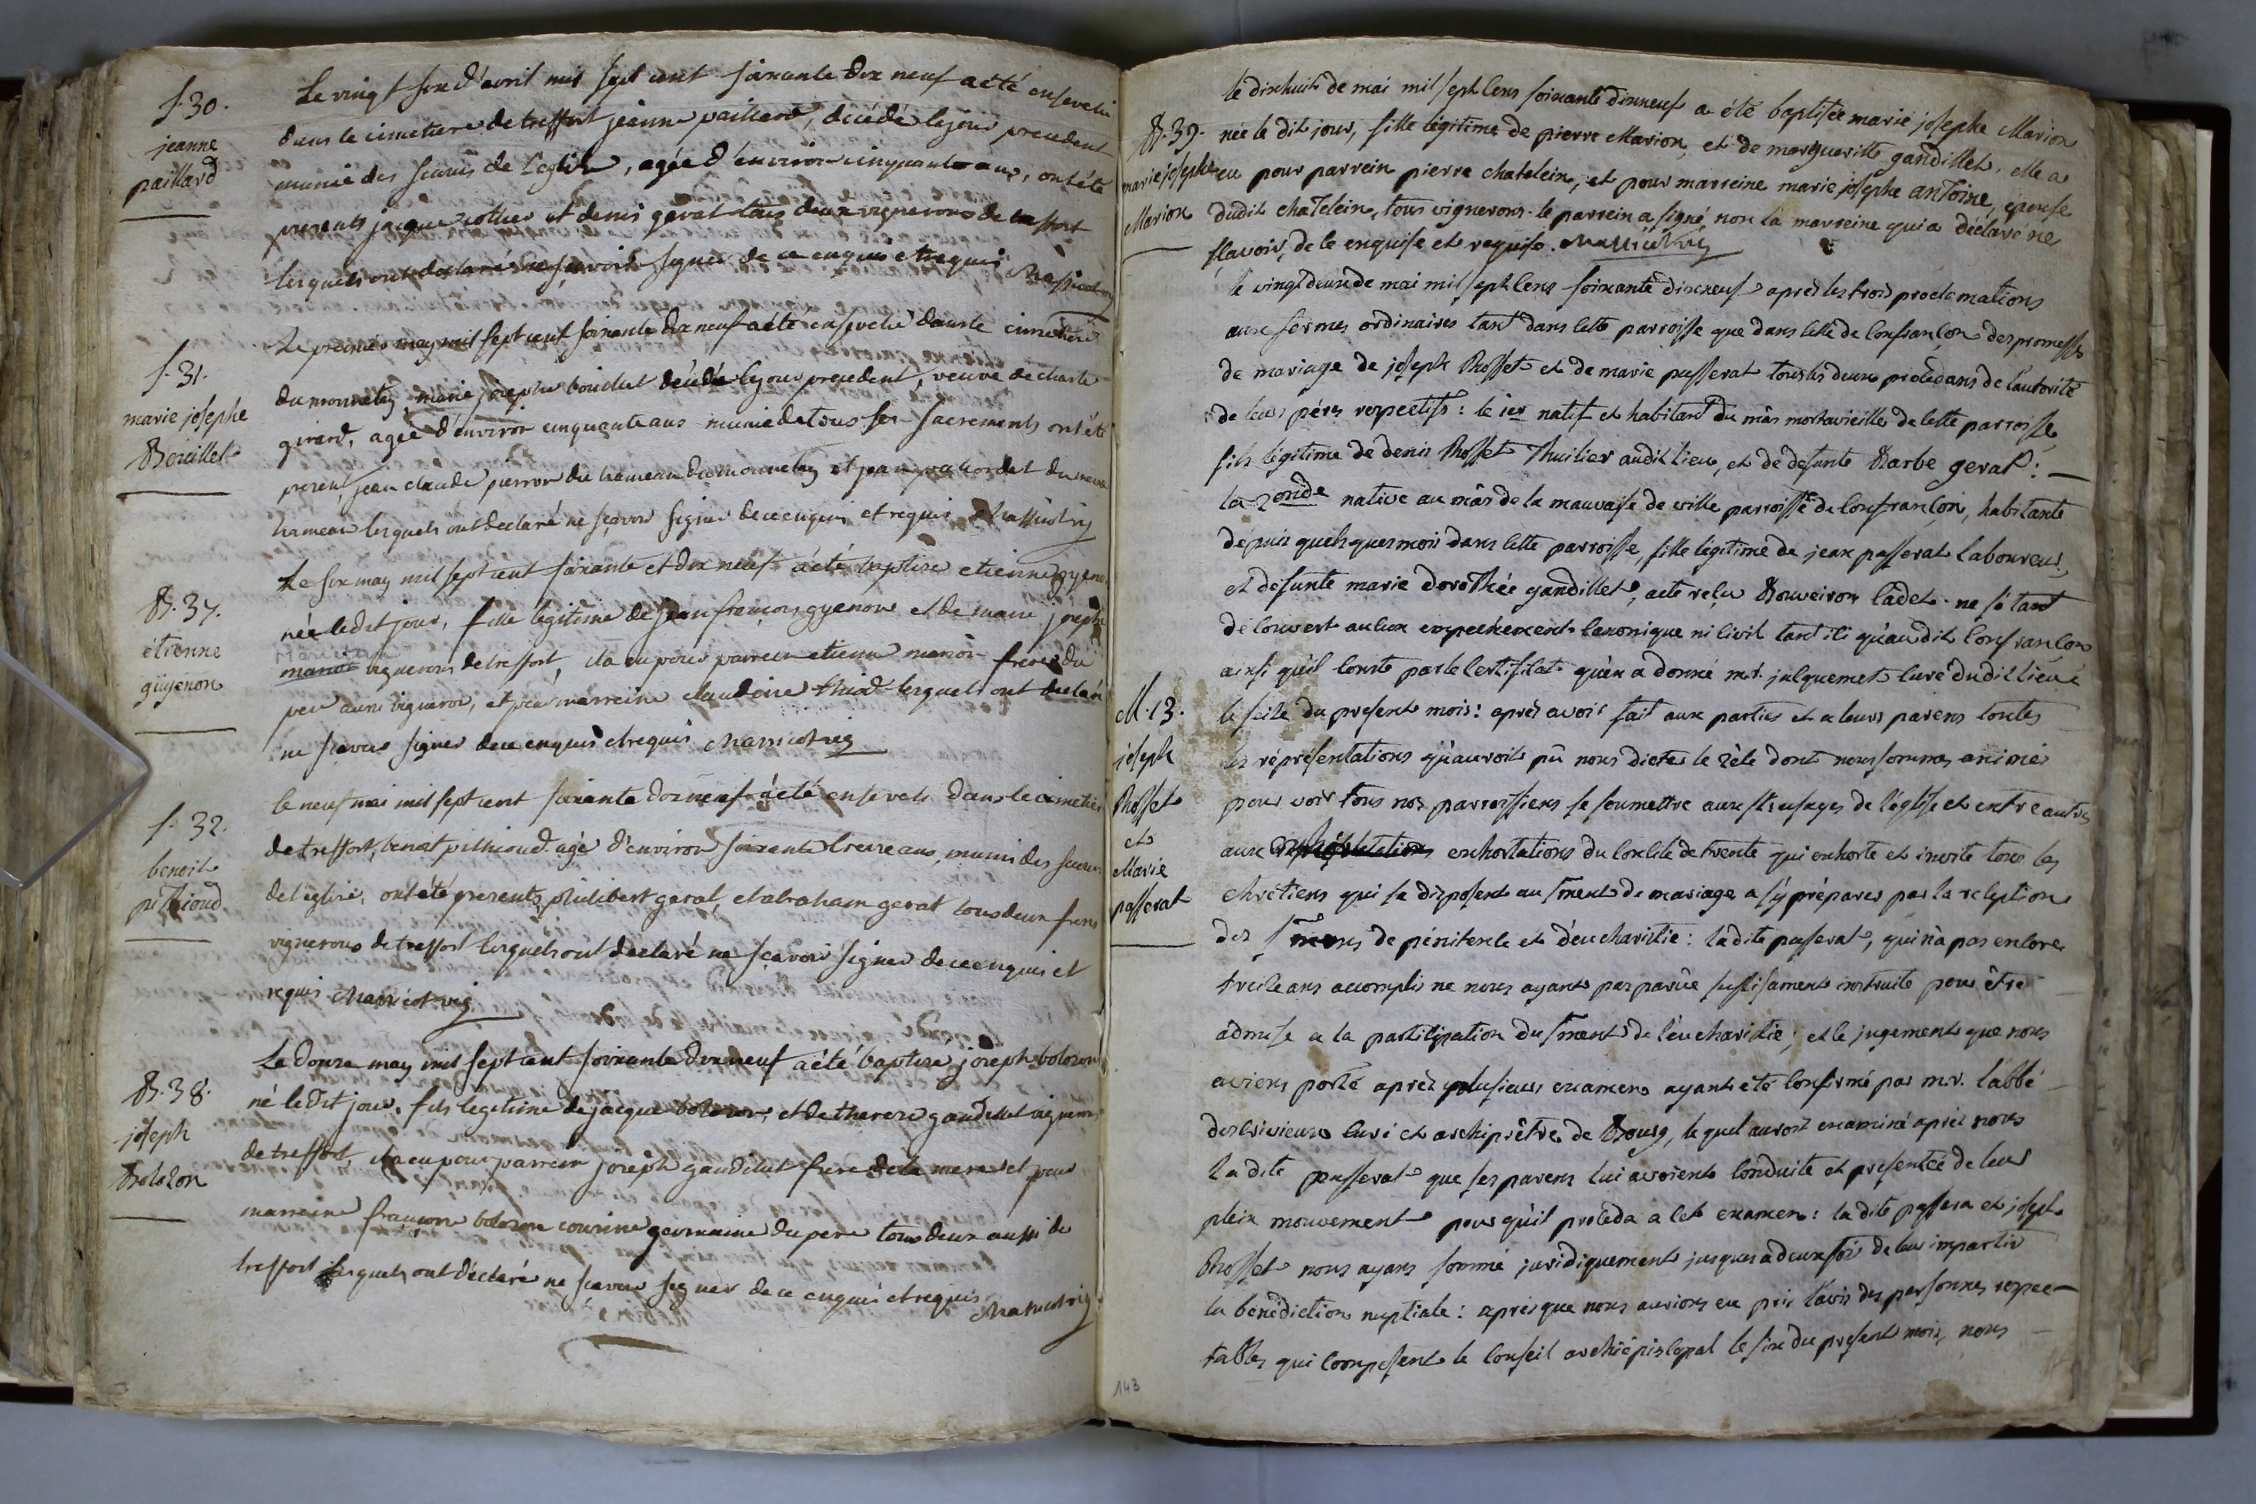 s. 30.
jeanne
paillard
Le vingt six d'avril mil sept cent soixante dix neuf a été ensevelie
dans le cimetiere de treffort jeanne paillard, décédée le jour precedent
munie des secours de l'eglise, agée d'environ cinquante ans, ont été
presents jacque et denis gerat tous deux vignerons de treffort
lesquels ont declaré ne sçavoir signer de ce enquis et requis
s. 31.
marie josephe
Bouillet
Le premier may mil sept cent soixante dix neuf a été ensevelie dans le cimetiere
du monnetay, marie josephe bouillet décédée le jour precedent, veuve de charle
girard, agée d'environ cinquante ans munie de tous ses sacrements ont été
present, jean claude pierron du hameau du monnetay et jean du meme
hameau lesquels ont declaré ne sçavoir signer de ce enquis et requis
B. 37.
étienne
guyénon
Le six may mil sept cent soixante et dix neuf a été baptisé etienne gyenon
née le dit jour, fille legitime de jean françois gyenon et de marie josephe
vignerons de treffort, il a eu pour parrein etienne manon frere du
pere aussi vigneron, et pour marreine claudoine lesquels ont declaré
ne sçavoir signer de ce enquis et requis
s. 32.
benoit
pithioud
le neuf mai mil sept cent soixante dix neuf a été enseveli dans le cimetiere
de treffort, benoit pithioud agé d'environ soixante treize ans, muni des secours
de l'eglise, ont été presents, philibert gerat, et abraham gerat tous deux freres
vignerons de treffort lesquels ont declaré ne sçavoir signer de ce enquis et
requis
B. 38.
joseph
Bolozon
Le douze may mil sept cent soixante dix neuf a été baptisé joseph bolozon
né le dit jour, fils legitime de jacque bolozon, et de therese gaudillet vignerons
de treffort il a eu pour parrein joseph gaudillet frere de la mere et pour
marreine françoise bolozon cousine germaine du pere tous deux aussi de
treffort lesquels ont déclaré ne sçavoir signer de ce enquis et requis
B. 39.
marie josephe
Marion
le dixhuit de mai mil sept cens soixante dixneuf a été baptisée marie josephe Marion
née le dit jour, fille légitime de pierre Marion, et de margueritte gandillet, elle a
eu pour parrein pierre chatelein, et pour marreine marie josephe antoine, épouse
dudit chatelein, tous vignerons. le parrein a signé non la marreine qui a déclaré ne
sçavoir, de ce enquise et requise.
M. 13.
joseph
Rosset
et
Marie
passerat
le vingt deux de mai mil sept cens soixante dixneuf après les trois proclamations
aux formes ordinaires tant dans cette parroisse que dans celle de confrançon des promesses
de mariage de joseph Rosset et de marie passerat tous les deux procédans de l'autorité
de leurs pères respectifs: le 1er natif et habitant du mâs mortavieille de cette parroisse,
fils légitime de denis Rosset Thuilier audit lieu, et de defunte Barbe gerat:
la 2onde native au mâs de la mauvaise de ville parroisse de confrançon, habitante
depuis quelques mois dans cette parroisse, fille légitime de jean passerat laboureur,
et defunte marie dorothée gandillet, acte reçu Bouveiron cadet. ne s'étant
découvert aucun empechement canonique ni civil tant ici qu'audit confrançon
ainsi qu'il conste par le certificat qu'en a donné mr. julquemet curé dudit lieu
le seize du present mois: après avoir fait aux parties et a leurs parens toutes
les réprésentations qu'auroit pû nous dicter le zèle dont nous sommes animé
pour voir tous nos parroissiens se soumettre aux sts usages de l'église et entre autres
aux exhortations du concile de trente qui exhorte et invite tous les
chrétiens qui se disposent au sment de mariage a s'y préparer par la reception
des smens de pénitence et d'eucharistie: la dite passerat, qui n'a pas encore
treize ans accomplis ne nous ayant pas parûe suffisament instruite pour être
admise a la participation du sment de l'eucharistie; et le jugement que nous
avions porté après plusieurs examens ayant été confirmé par mr. l'abbé
curé et archiprêtre de Bourg, lequel auroit examiné après nous
la dite passerat que ses parens lui avoient conduite et presentée de leur
plein mouvement pour qu'il proceda a cet examen: la dite passera et joseph
Rosset nous ayans sommé juridiquement jusques a deux fois de leur impartir
la bénédiction nuptiale: après que nous aurions eu pris l'avis des personnes respec-
tables qui composent le conseil archiépiscopal le six du present mois, nous
143